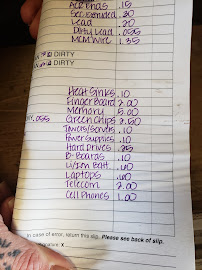 ACR Ends .15
Sec. Extruded .30
Lead .20
Dirty Lead .055
MCM Wire 1.35
DIRTY
DIRTY
Heat Sinks .10
Finger Board 2.00
Memory 5.00
Green Chips 2.50
.055
Towers/Servers .10
Power Supplies .10
Hard Drives .25
B-Boards .10
Li/Ion Batt. .40
Laptops .40
Telecom 2.00
Cell Phones 1.00
In case of error, return this slip. Please see back of slip.
Signature: X